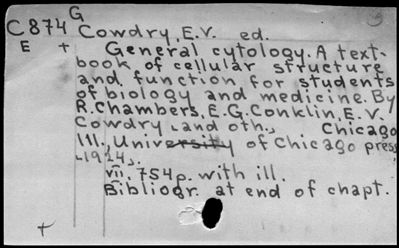 G
C874 Cowdry, E.V. ed.
E + General cytology. A text-
book of cellular structure
and function for students
of biology and medicine. By
R. Chambers, E.G. Conklin, E.V.
Cowdry ˻and oth.˼ Chicago
Ill., University of Chicago press
˻1924˼.
VII, 754 p. with ill.
Bibliogr. at end of chapt.
+